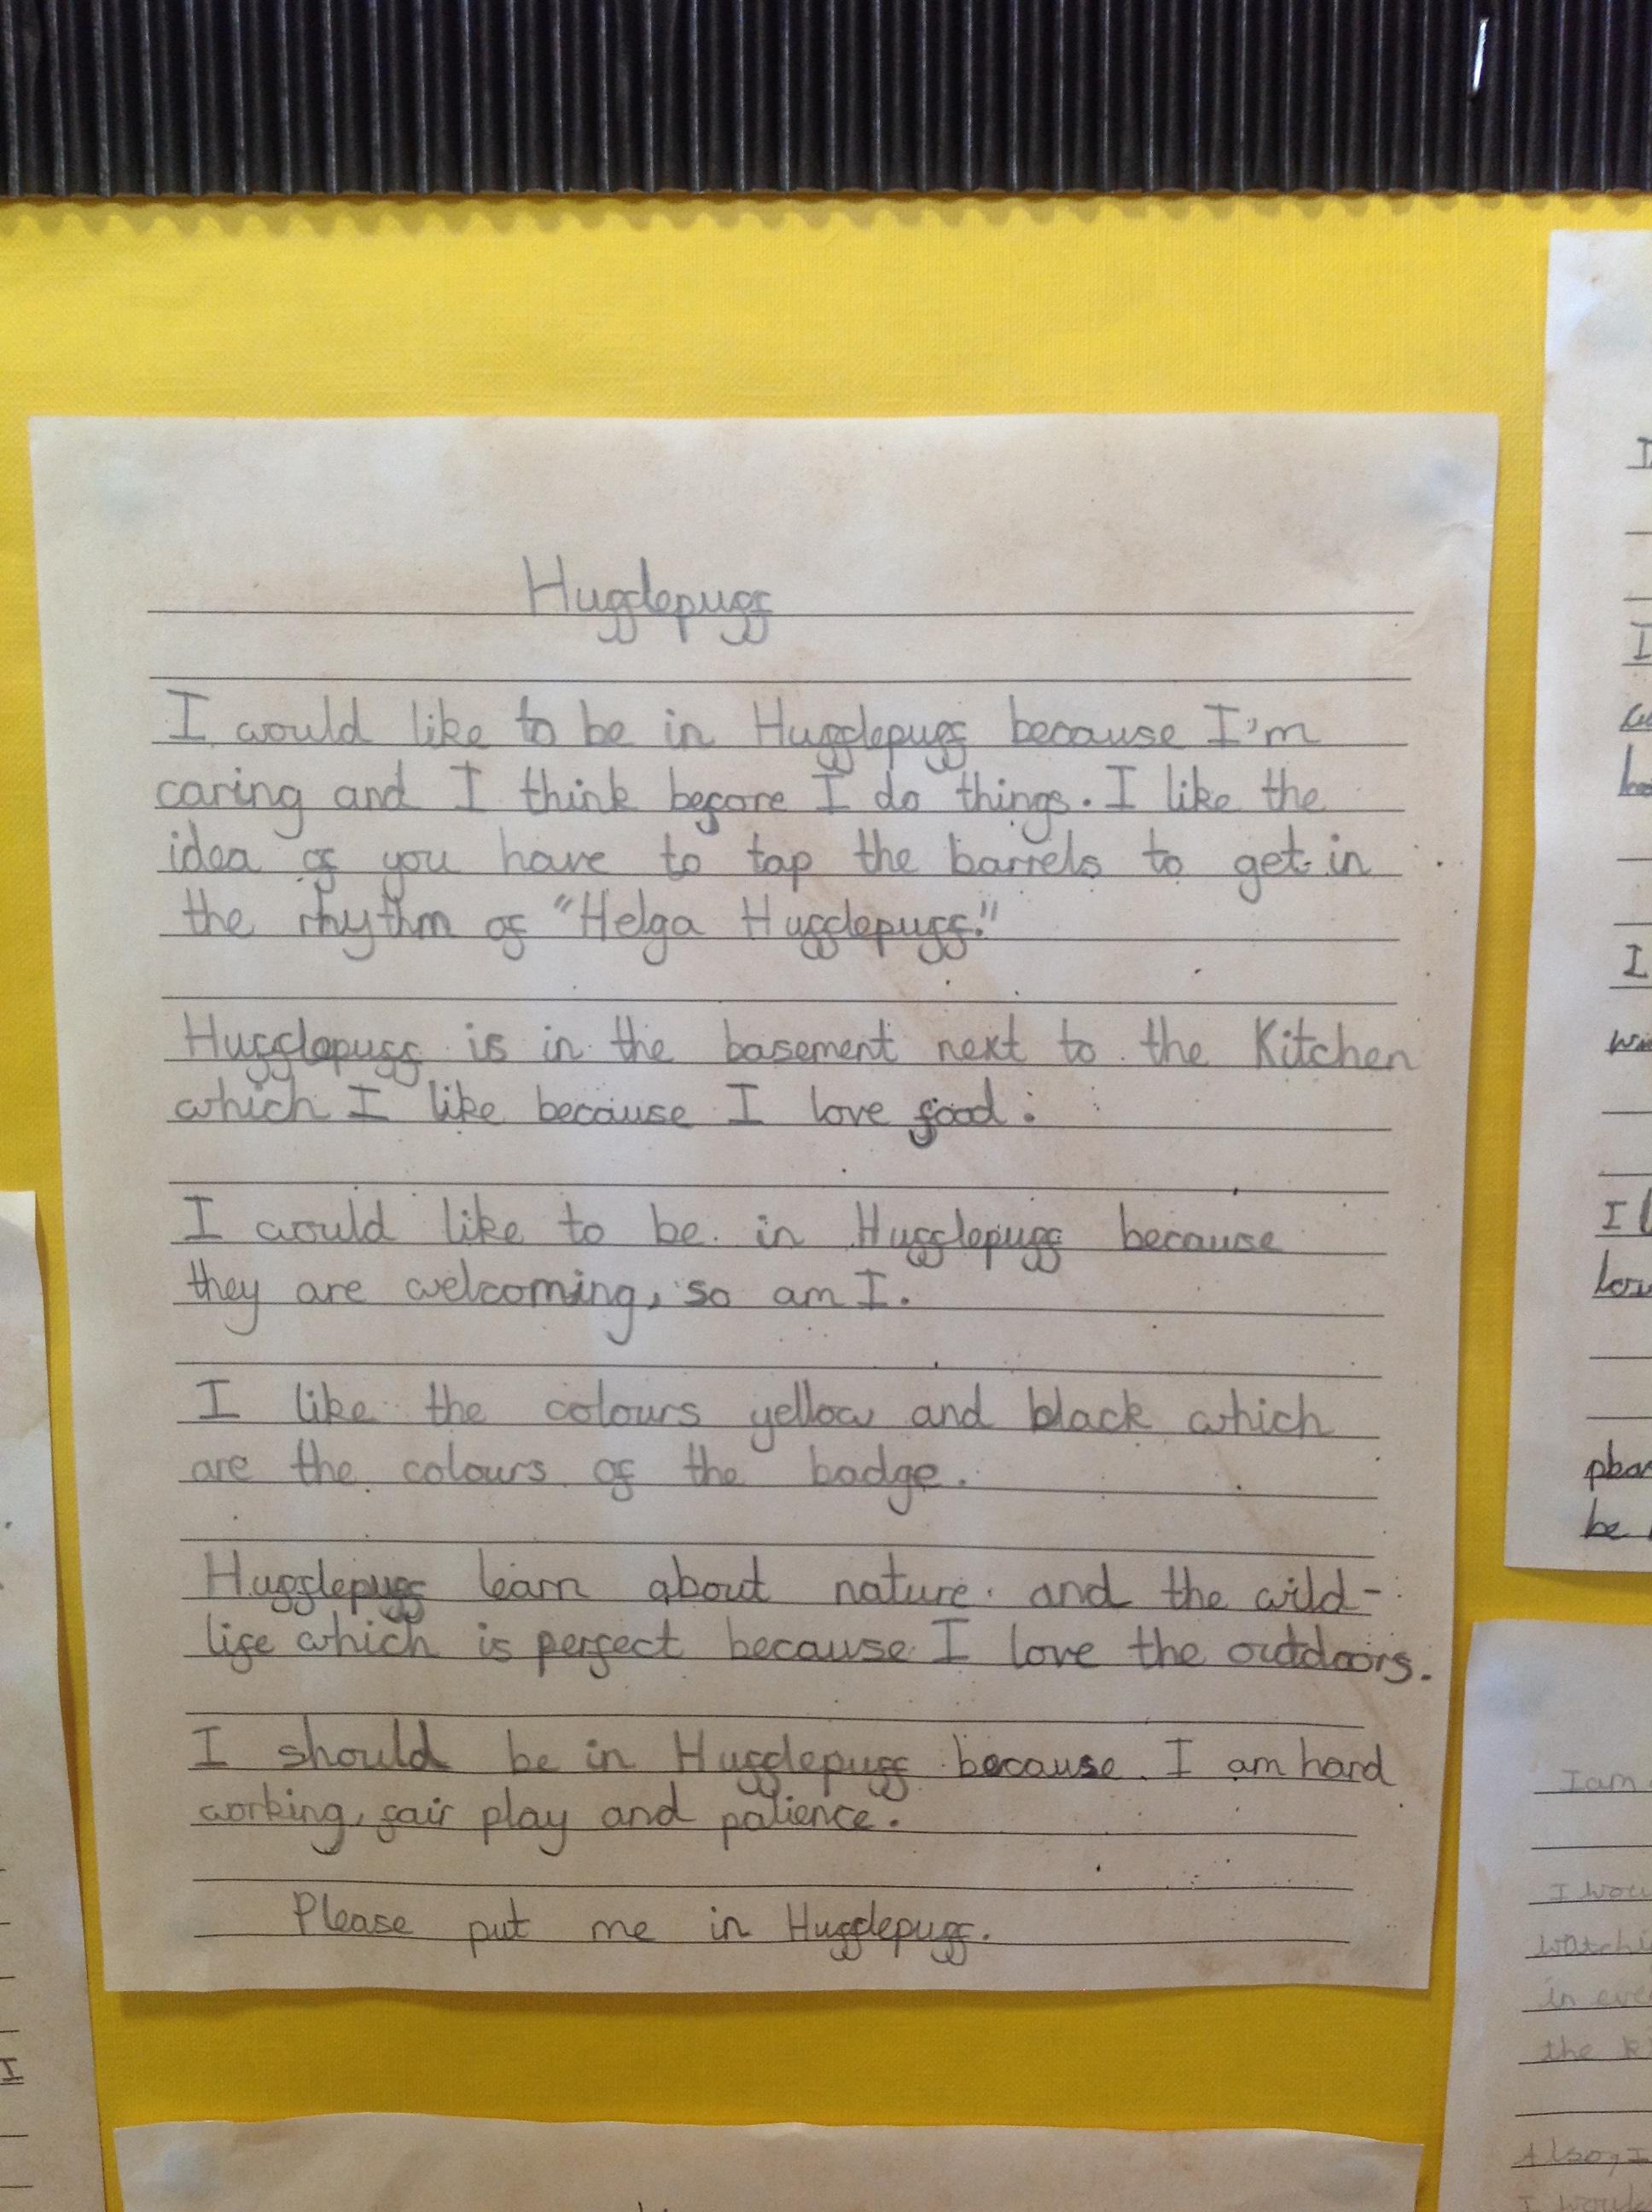 Hufflepuff
I would like to be in Hufflepuff because I'm
caring and I think before I do things. I like the
idea of you have to tap the barrels to get in
the rhythm of "Helga Hufflepuff."
Hufflepuff is in the basement next to the Kitchen
which I like because I love food.
I would like to be in Hufflepuff because
they are welcoming, so am I.
I like the colours yellow and black which
are the colours of the badge.
Hufflepuff learn about nature and the wild-
life which is perfect because I love the outdoors.
I should be in Hufflepuff because I am hard
working, fair play and patience.
Please put me in Hufflepuff.
I
I
I
I
be
I am
in
the
Also, I
I